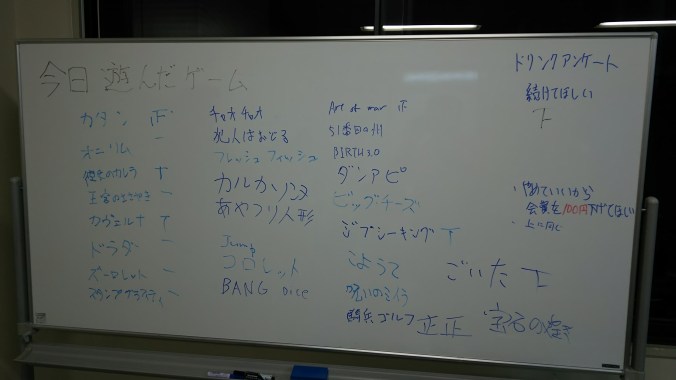 今日 遊んだゲーム
カタン 正
オニリム 一
王宮のささやき 一
カヴェルナ T
ドラダ 一
ズーロレット 一
チャオチャオ
犯人はおどる
フレッシュ フィッシュ
カルカソンヌ
あやつり人形
Jump
コロレット
BANG DICE
Art of war 正
51番目の州
BIRTH 3.0
ダンアピ
ビッグチーズ
ジプシーキング 下
こようて
呪いのミイラ
闘兵ゴルフ 正正
ごいた 工
宝石の煌き
ドリンクアンケート
続けてほしい
下
・やめていいから
会費を100円下げてほしい
・上に同じ